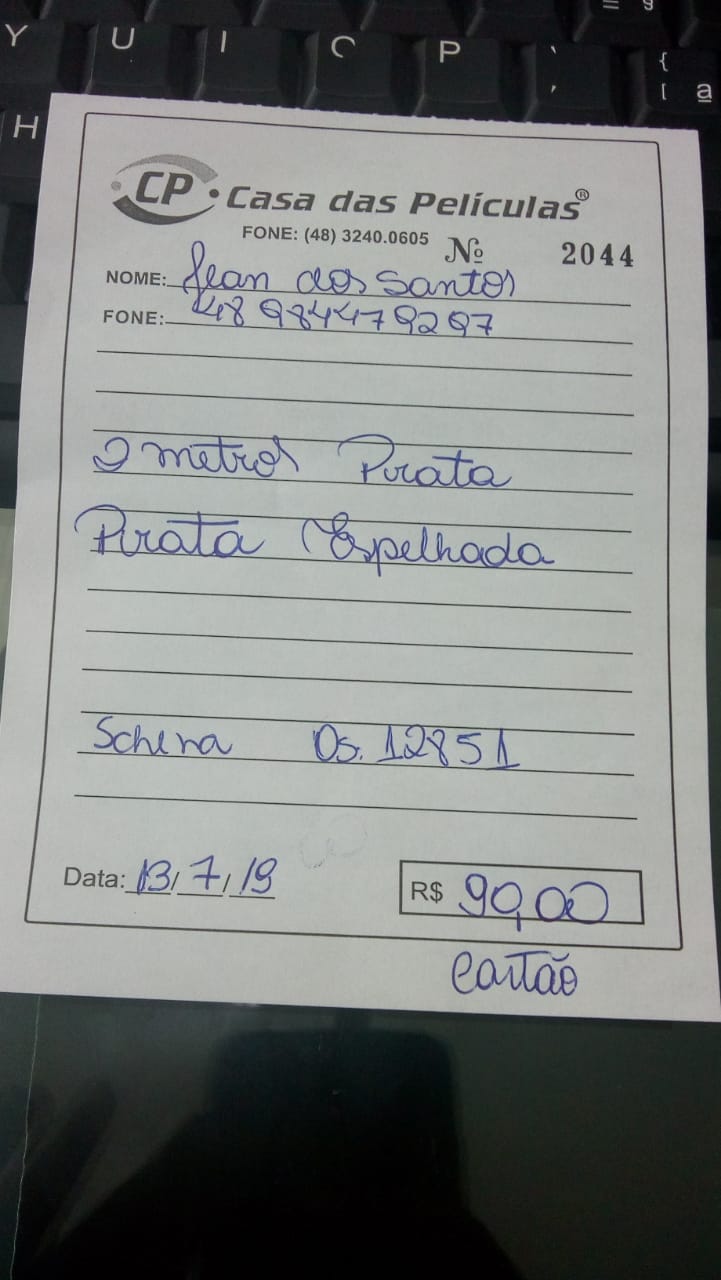 Y U I O P ` { [ ª
H
CP Casa das Películas®
FONE: (48) 3240.0605 Nº 2044
NOME: Jean dos Santos
FONE: 48 984479297
2 metros Prata
Prata Espelhada
Schina Os. 12851
Data: 13/7/19 R$ 90,00
cartão